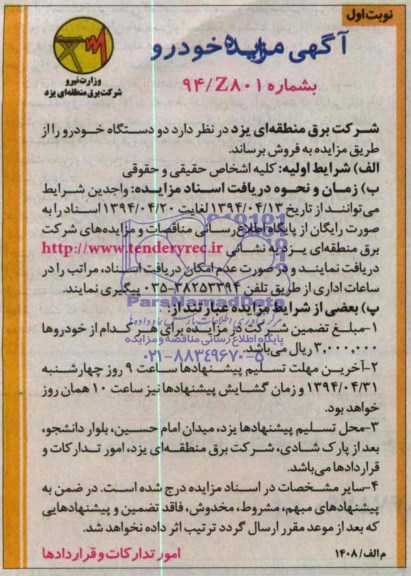 نوبت اول
آگهی مزایده خودرو
بشماره ۹۴/Z۸۰۱
وزارت نیرو
شرکت برق منطقه‌ای یزد
شرکت برق منطقه‌ای یزد در نظر دارد دو دستگاه خودرو را از
طریق مزایده به فروش برساند.
الف) شرایط اولیه: کلیه اشخاص حقیقی و حقوقی
ب) زمان و نحوه دریافت اسناد مزایده: واجدین شرایط
می‌توانند از تاریخ ۱۳۹۴/۰۴/۱۳ لغایت ۱۳۹۴/۰۴/۲۰ اسناد را به
صورت رایگان از پایگاه اطلاع رسانی مناقصات و مزایده‌های شرکت
برق منطقه‌ای یزد به نشانی http://www.tenderyrec.ir
دریافت نمایند و در صورت عدم امکان دریافت اسناد، مراتب را در
ساعات اداری از طریق تلفن ۳۸۲۵۳۳۹۴-۰۳۵ پیگیری نمایند.
پ) بعضی از شرایط مزایده عبارتند از:
۱-مبلغ تضمین شرکت در مزایده برای هر کدام از خودروها
۳,۰۰۰,۰۰۰ ریال می‌باشد.
۲-آخرین مهلت تسلیم پیشنهادها ساعت ۹ روز چهارشنبه
۱۳۹۴/۰۴/۳۱ و زمان گشایش پیشنهادها نیز ساعت ۱۰ همان روز
خواهد بود.
۳-محل تسلیم پیشنهادها یزد، میدان امام حسین، بلوار دانشجو،
بعد از پارک شادی، شرکت برق منطقه‌ای یزد، امور تدارکات و
قراردادها می‌باشد.
۴-سایر مشخصات در اسناد مزایده درج شده است. در ضمن به
پیشنهادهای مبهم، مشروط، مخدوش، فاقد تضمین و پیشنهادهایی
که بعد از موعد مقرر ارسال گردد ترتیب اثر داده نخواهد شد.
م الف/ ۱۴۰۸
امور تدارکات و قراردادها
ParsNamadData
پایگاه اطلاع رسانی مناقصه و مزایده
۰۲۱-۸۸۳۴۹۶۷۰-۵